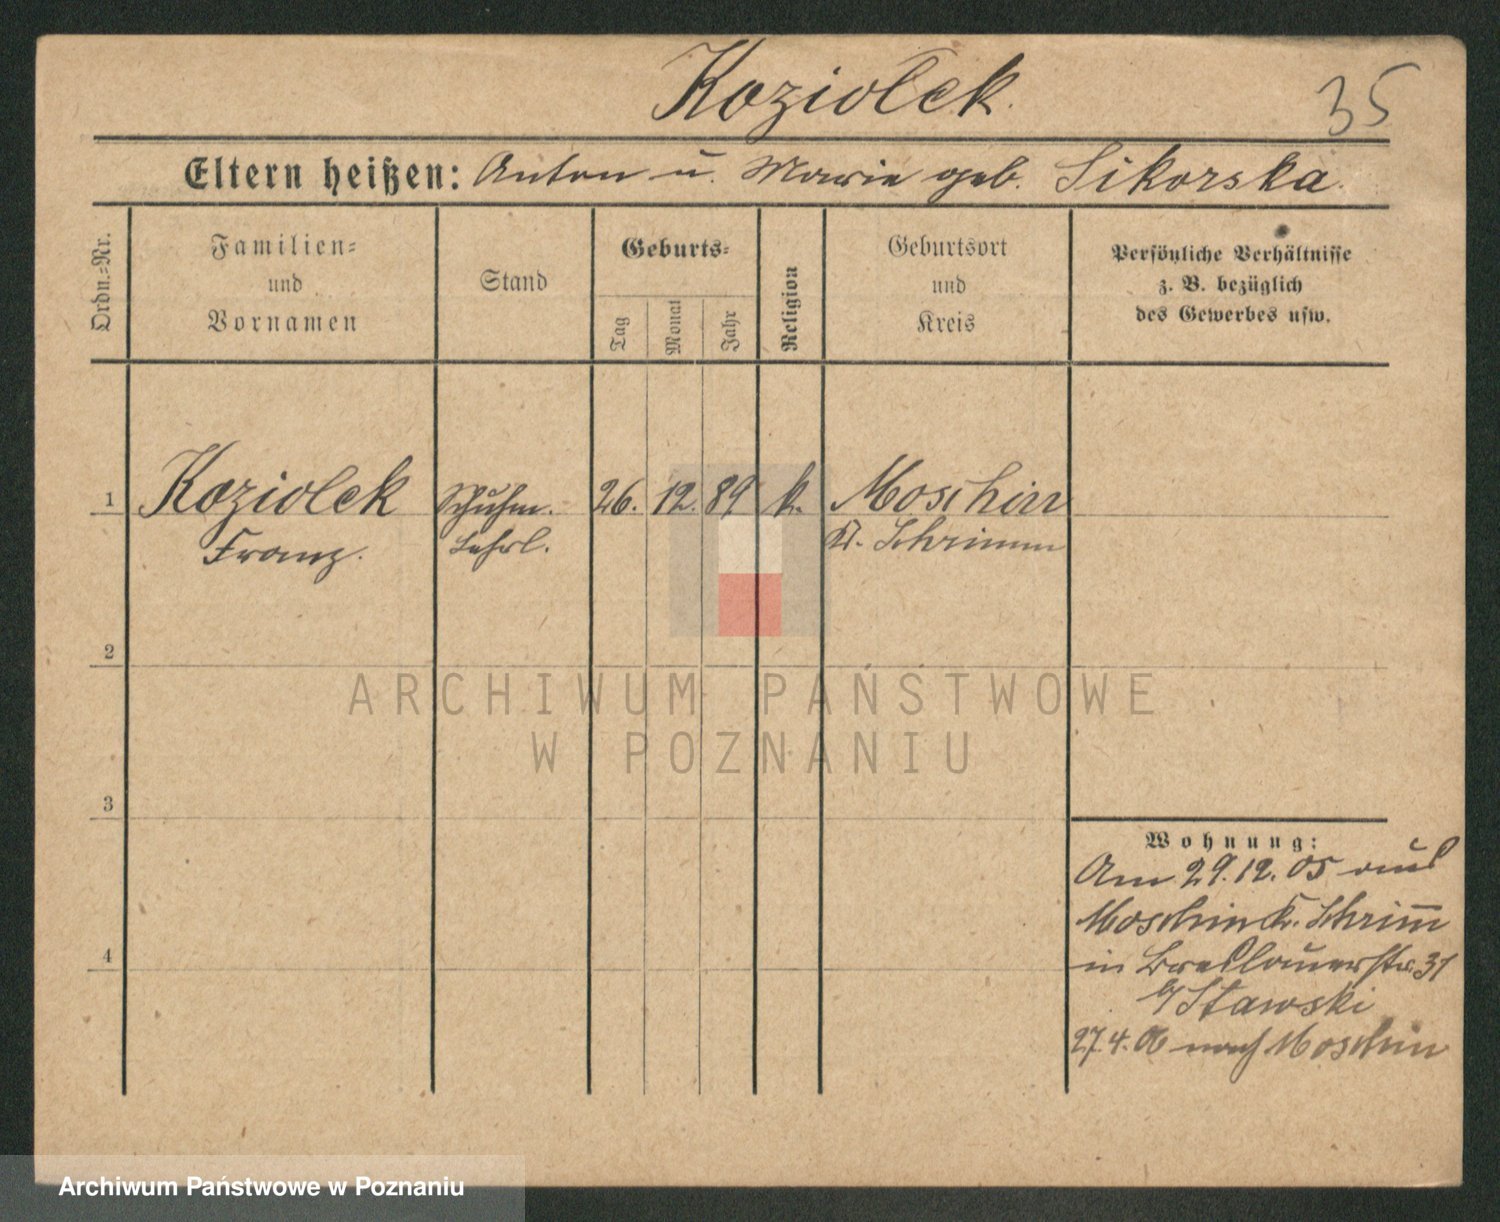 Koziolek.
35
Eltern heißen: Anton u. Marie geb. Sikorska.
Ordn.=Nr.
Familien=
und
Vornamen
Stand
Geburts=
Tag
Monat
Jahr
Religion
Geburtsort
und
Kreis
Persönliche Verhältnisse
z. B. bezüglich
des Gewerbes usw.
1 Koziolek Schuhm. 26. 12. 89 k. Moschin
Franz. Lehrl. Kr. Schrimm
2
ARCHIWUM PAŃSTWOWE
W POZNANIU
3
Wohnung:
Am 29.12.05 aus
Moschin Kr. Schrim̄
4
in Breslauerstr. 31
b/ Stawski
27.4.06 nach Moschin
Archiwum Państwowe w Poznaniu